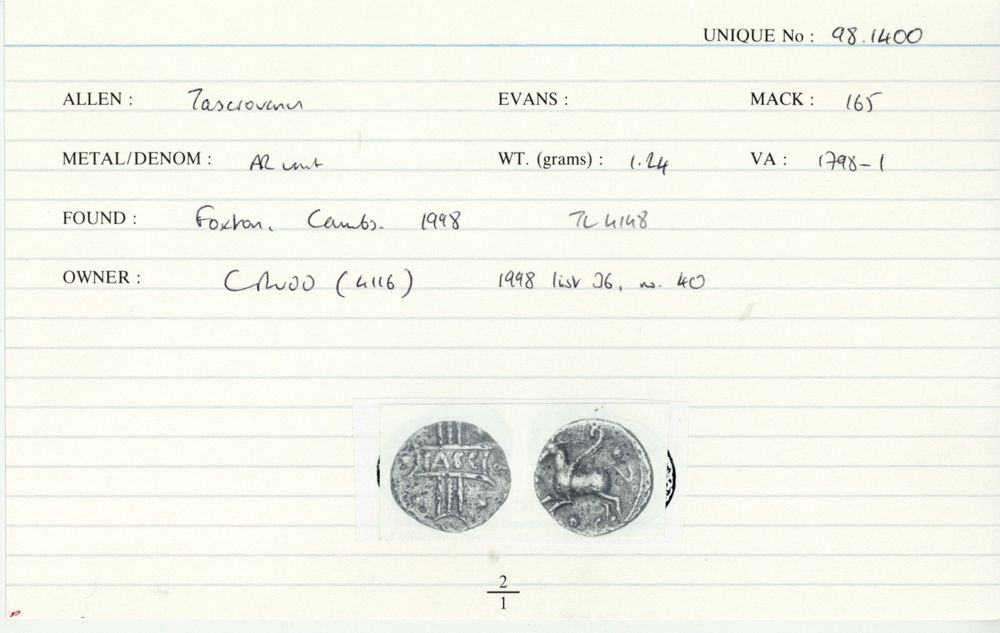 UNIQUE No : 98.1400
ALLEN : Tasciovanus EVANS : MACK : 165
METAL/DENOM : AR unit WT. (grams) : 1.24 VA : 1798-1
FOUND : Foxton, Cambs. 1998 TL 4148
OWNER : (4116) 1998 list 36, no. 40
TASCI
2
1